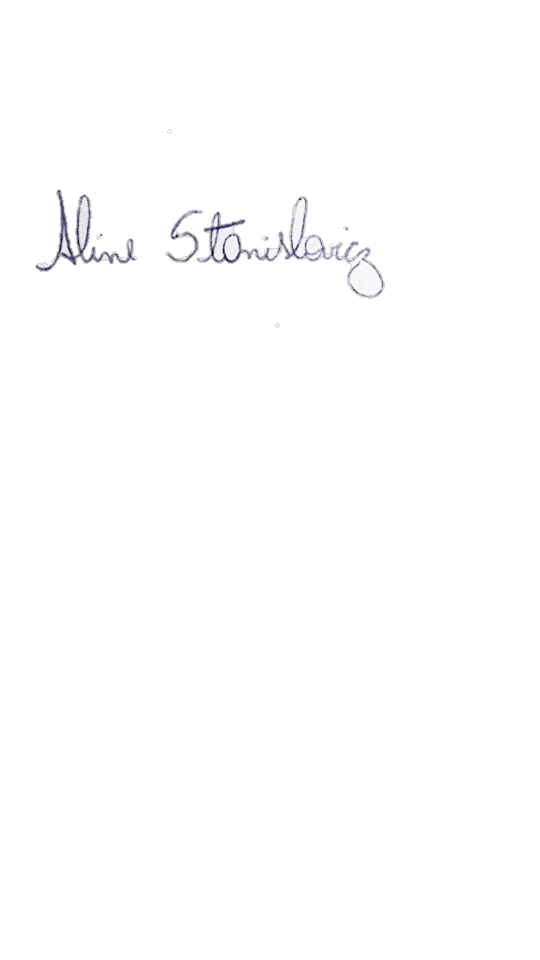 Aline Stanislavicz